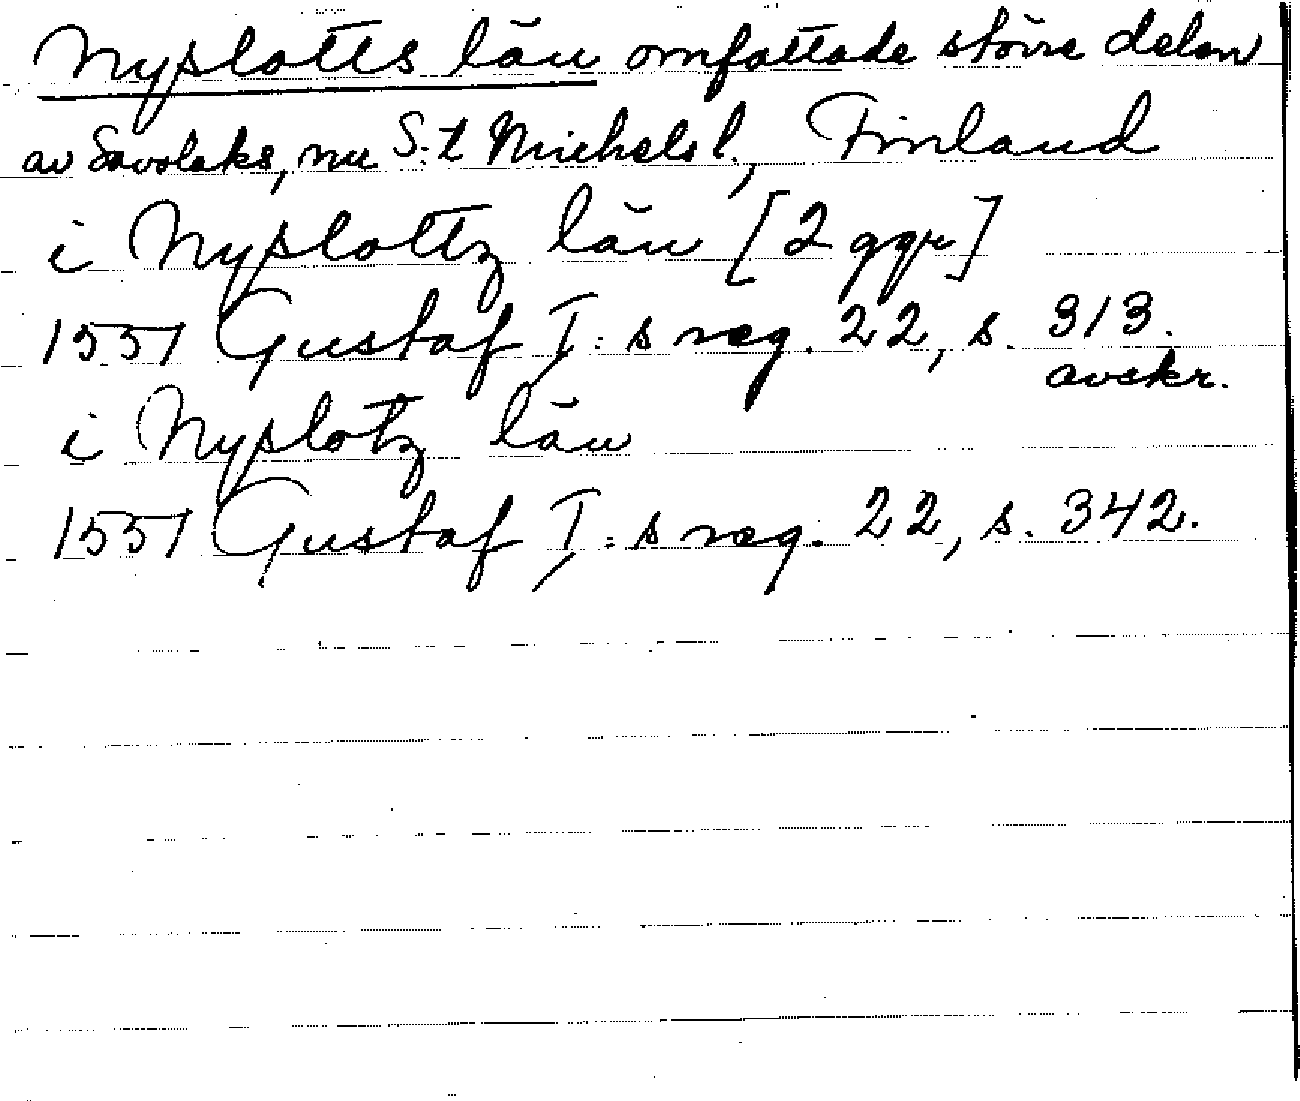 Nyslotts län omfattade större delen
av Savolaks, nu S:t Michels l., Finland
i Nyslottz län [2 ggr]
1551 Gustaf I:s reg. 22, s. 313.
avskr.
i Nyslotz län
1551 Gustaf I:s reg. 22, s. 342.